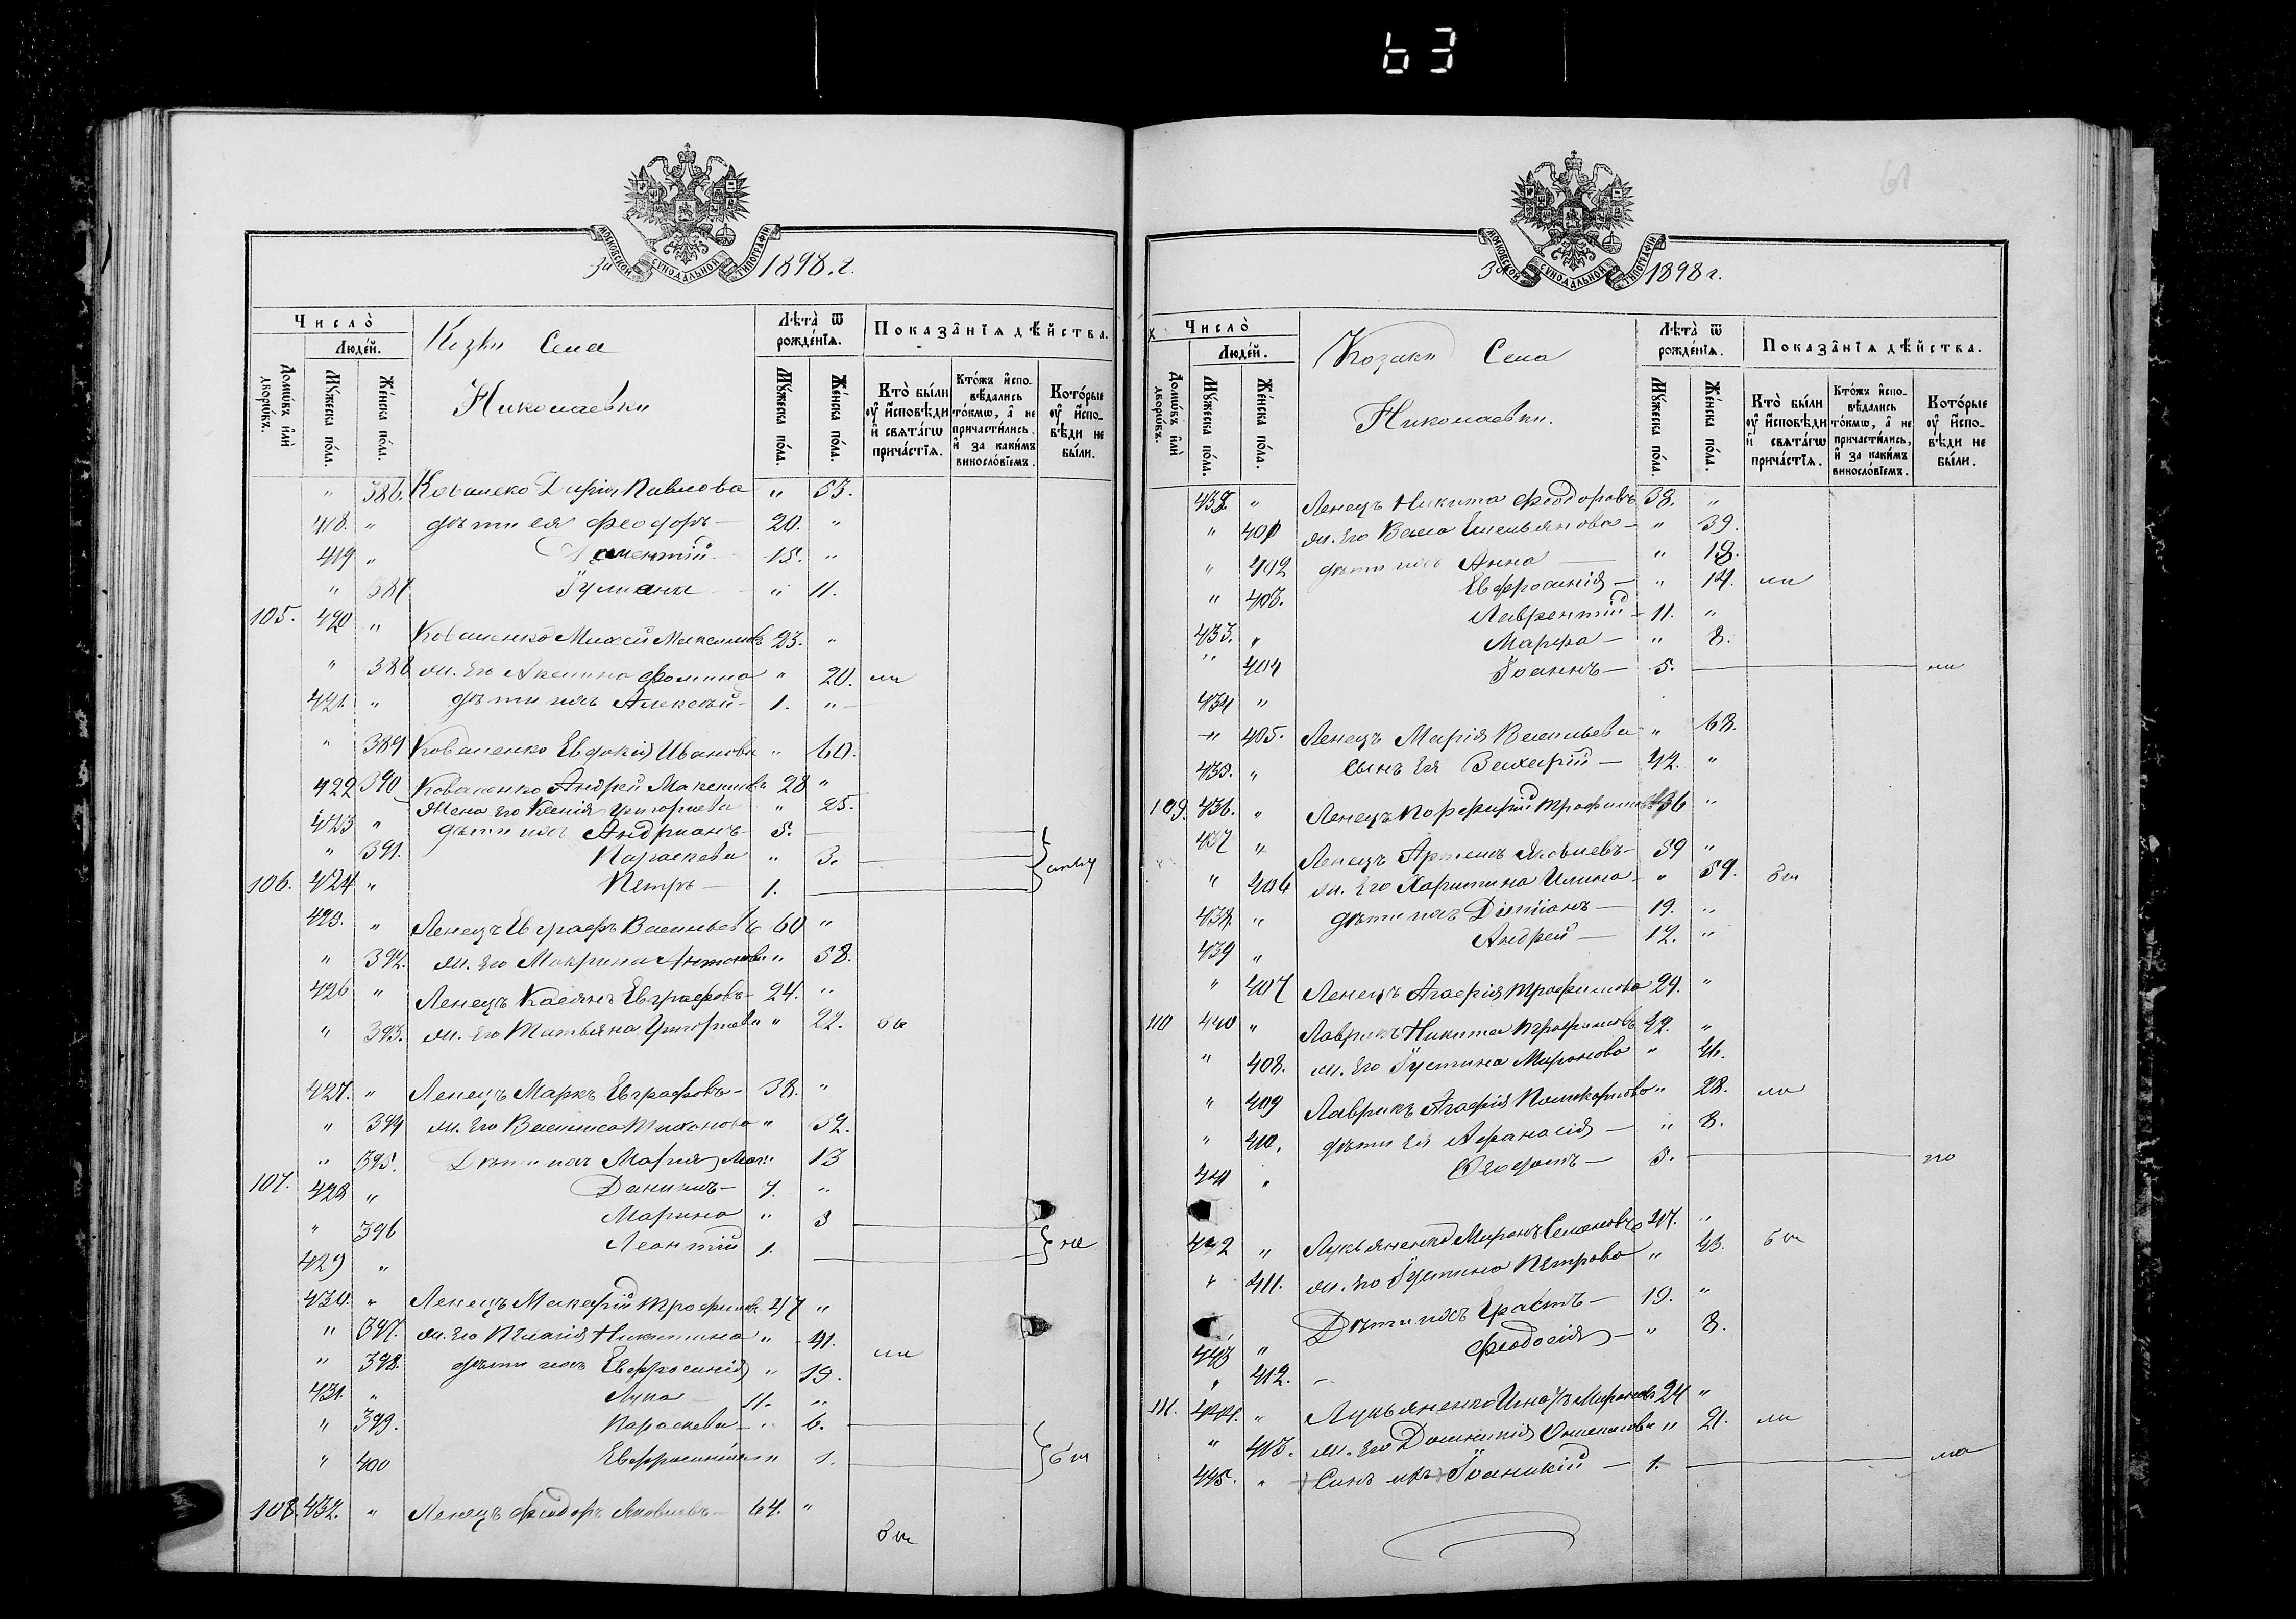 63
61
МОСКОВСКОЙ СѴНОДАЛЬНОЙ ТИПОГРАФІИ
За 1898. г.
Число̀
Людéй.
Домѡ́въ и҆лѝ дворѡ́въ.
Мꙋ́жеска по́ла.
Же́нска по́ла.
Села
Николаевки
Лѣта̀ ѿ рожде́нїѧ.
Мꙋ́жеска по́ла.
Же́нска по́ла.
Показа̑нїѧ дѣ́йства.
Кто̀ бы́ли ᲂу҆ и҆сповѣ́ди и҆ свѧта́гѡ прича́стїѧ.
Кто́жъ и҆сповѣ́дались то́кмѡ, а҆ не причасти́лись, и҆ за каки́мъ винослові́емъ.
Кото́рые ᲂу҆ и҆сповѣ́ди не бы́ли.
" 386. Дарія Павлова " 53.
418. " дѣти ея Феодоръ — 20. "
419 " 15. "
" 387 Іуліанія " 11.
105. 420 " Коваленко Михей Максимовъ 23. "
" 388 ж. его Акилина Фомина " 20.
421. " дѣти ихъ Алексѣй — 1. "
" 389 Коваленко Евдокія Иванова " 60.
422 390 Коваленко Андрей Максимовъ 28 "
Жена его Ксенія Григорьева " 25.
423 " дѣти ихъ Андріанъ — 5.
" 391. Параскева " 3.
106. 424 " Петръ — 1.
425. " Ленецъ Евграфъ Васильевъ 60 "
" 392. ж. его Макрина Антонова " 58.
426 " Ленецъ Касіянъ Евграфовъ — 24. "
" 393. ж. его Татьяна Григорьева " 22.
427. " Ленецъ Маркъ Евграфовъ — 38. "
" 394 ж. его Василиса Тихонова " 32.
" 395. Дѣти ихъ Марія " 13
107. 428 " Даніилъ — 7. "
" 396 Марина " 3
429 " Леонтій 1.
430. " Ленецъ Макарій Трофимовъ 47 "
" 397. ж. его Пелагія Никитина " 41.
" 398. дѣти ихъ Евфросинія " 19.
431. " Лука — 11. "
" 399. Параскева — " 6.
" 400 Евфросинія " 1.
108. 432. " Ленецъ Феодоръ Яковлевъ — 64. "
За 1898 г.
Число̀
Людéй.
Домѡ́въ и҆лѝ дворѡ́въ.
Мꙋ́жеска по́ла.
Же́нска по́ла.
Козаки Села
Николаевки.
Лѣта̀ ѿ рожде́нїѧ.
Мꙋ́жеска по́ла.
Же́нска по́ла.
Показа̑нїѧ дѣ́йства.
Кто̀ бы́ли ᲂу҆ и҆сповѣ́ди и҆ свѧта́гѡ прича́стїѧ.
Кто́жъ и҆сповѣ́дались то́кмѡ, а҆ не причасти́лись, и҆ за каки́мъ винослові́емъ.
Кото́рые ᲂу҆ и҆сповѣ́ди не бы́ли.
" Ленецъ Никита Феодоровъ 38. "
" 401 ж. его Васса Емельянова — " 39.
" 402 дѣти ихъ Анна — " 18.
" 403. Евфросинія — " 14.
433. " Лаврентій — 11. "
" 404 Марфа — " 8.
434 " Іоаннъ — 5.
" 405. Ленецъ Марія Васильева " 68.
435. " сынъ ея Захарій — 42. "
109. 436. " Ленецъ Порфирій Трофимовъ 36 "
437 " Ленецъ Артемъ Яковлевъ — 59 "
" 406 ж. его Харитина Ильина — " 59.
438. " дѣти ихъ Диміанъ — 19. "
439 " Андрей — 12. "
" 407 Ленецъ Агафія Трофимова 29. "
110 440 " Лаврикъ Никита Трофимовъ 42. "
" 408. ж. его Іустина Миронова " 46.
" 409 Лаврикъ Агафія Поликарпова " 28.
" 410. дѣти ея Афанасія — " 8.
441 " Феодотъ — 5.
442 " Лукьяненко Миронъ Семеновъ 47. "
" 411. ж. его Іустина Петрова " 43.
443 " Дѣти ихъ Ерастъ — 19. "
" 412. Феодосія — " 8.
111. 444. " Лукьяненко Игнатъ Мироновъ 24 "
" 413. ж. его Домникія " 21.
445. " Сынъ ихъ Іоанникій — 1.